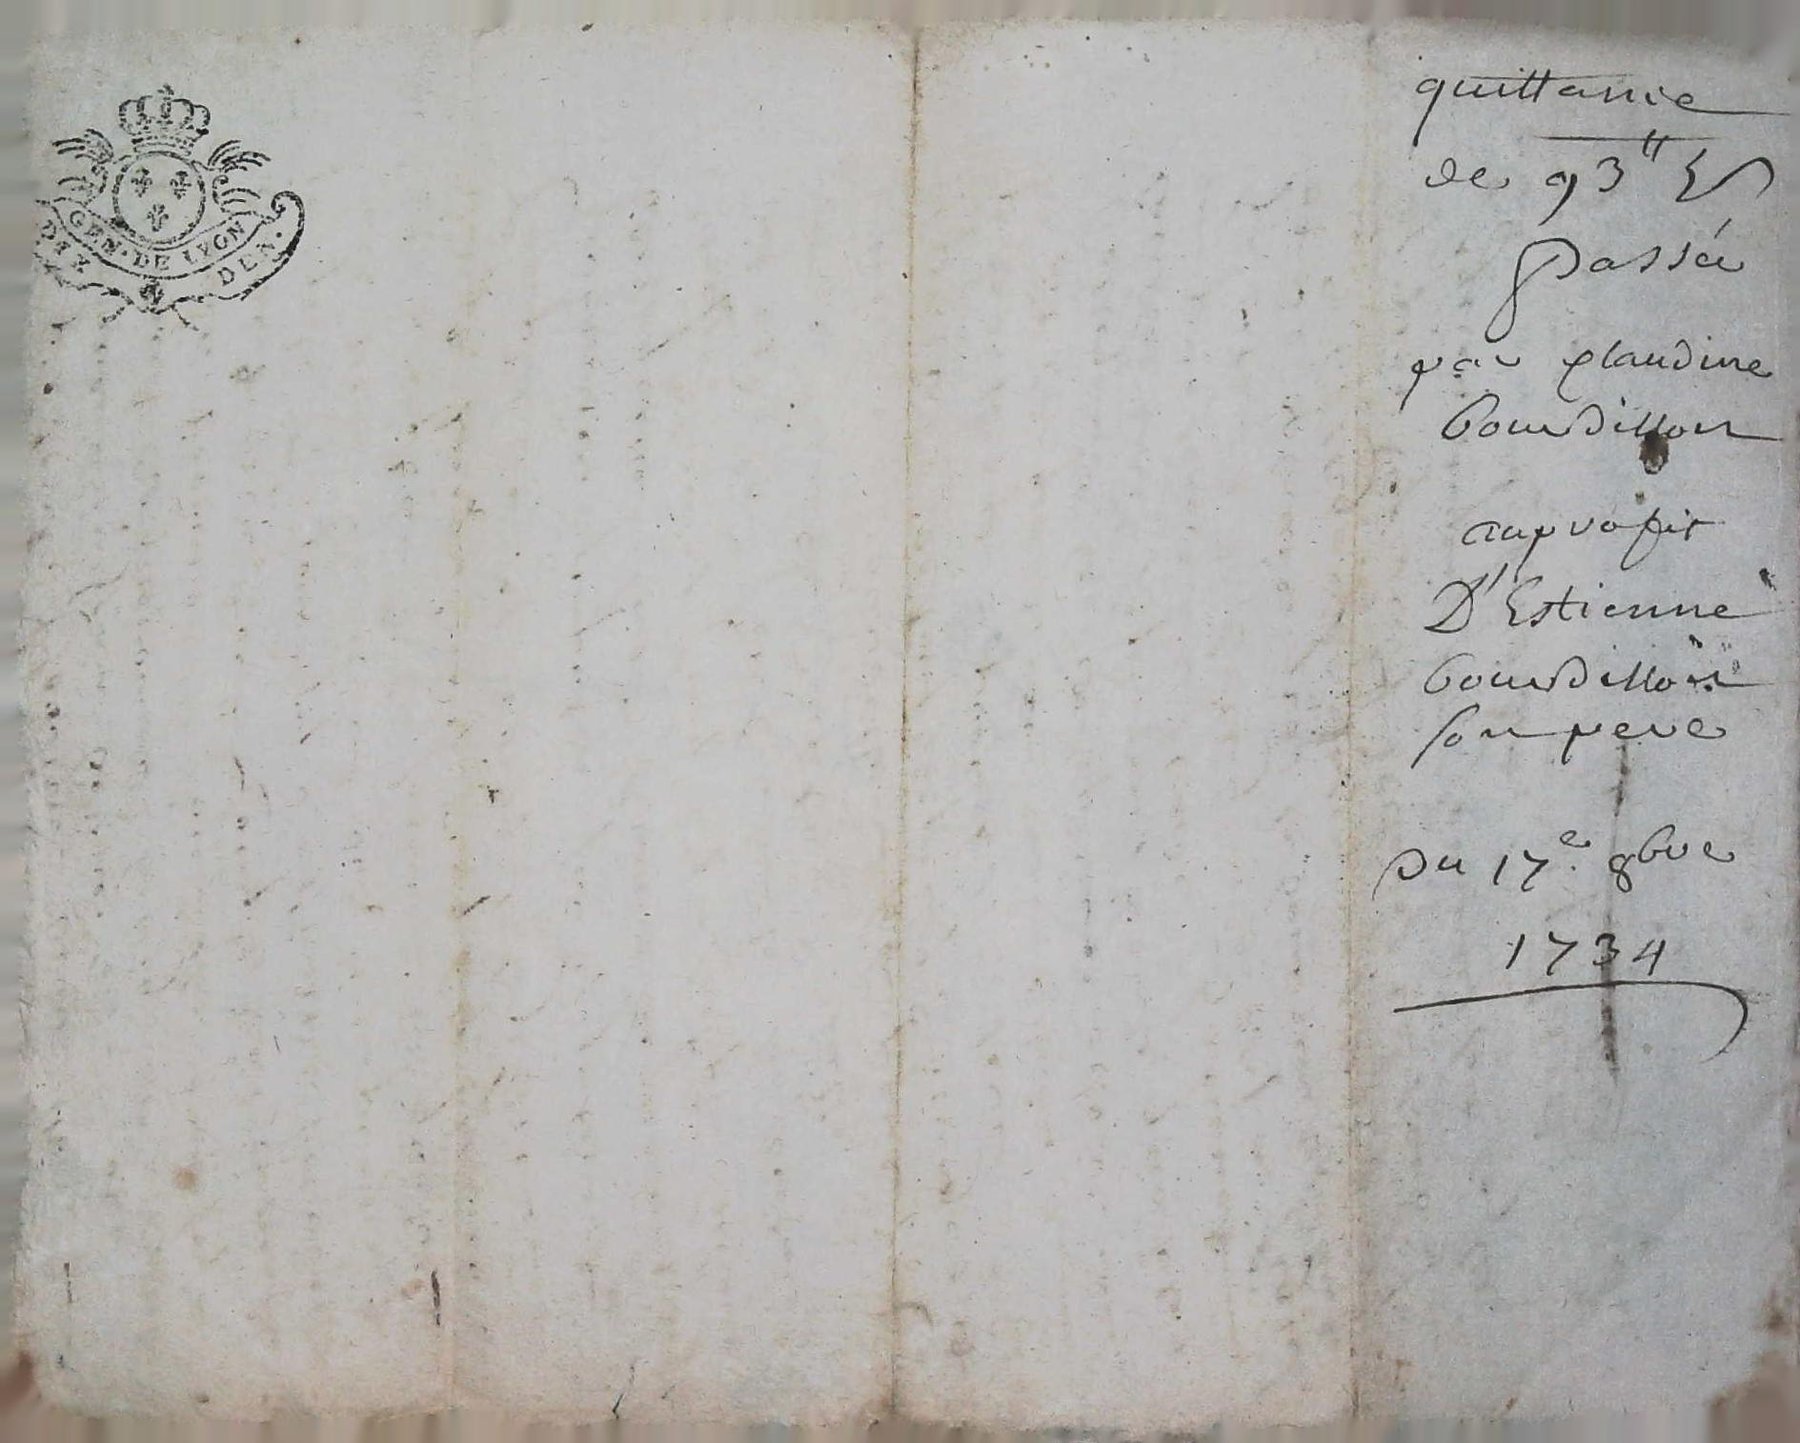 GEN · DE LYON
DIX DEN ·
quittance
de 93ᵗᵗ
passée
par claudine
bourdillon
auprofit
D'Estienne
bourdillon
son pere
Du 17ᵉ. 8bre
1734